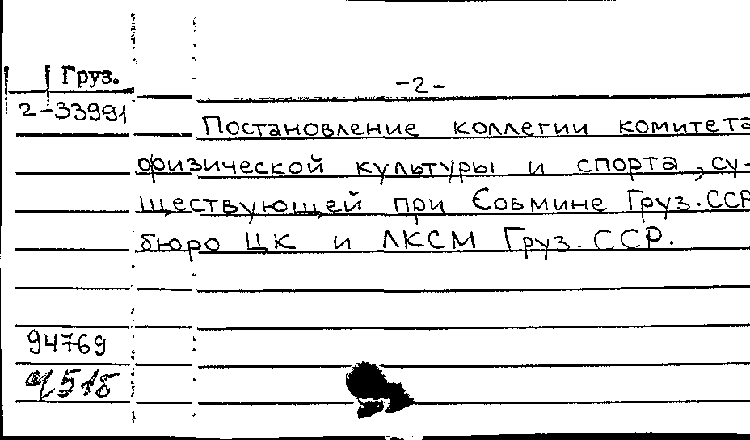 Груз.
-2-
2-33991
Постановление коллегии комитета
физической культуры и спорта, су-
ществующей при Совмине Груз.ССР
бюро ЦК и ЛКСМ Груз.ССР.
94769